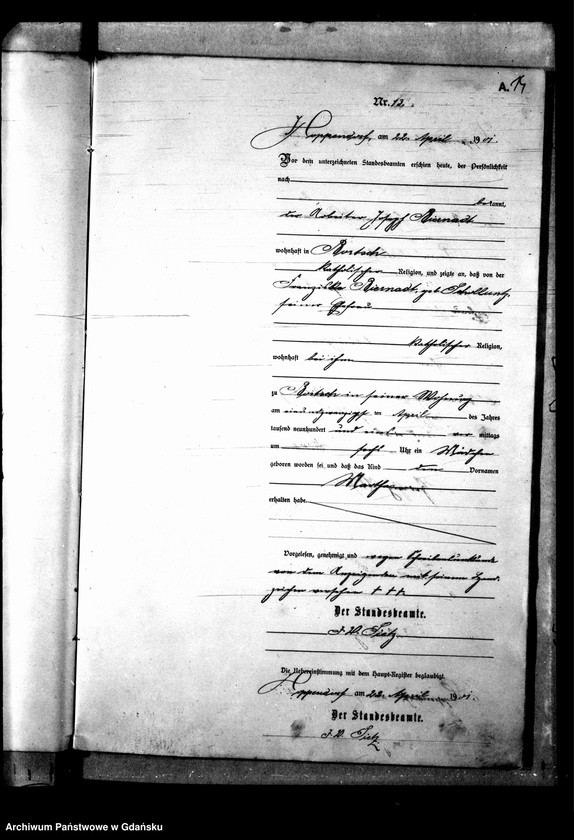 A.
Nr. 12.
Hoppendorf, am 22. April 1901.
Vor dem unterzeichneten Standesbeamten erschien heute, der Persönlichkeit
nach
bekannt,
der Arbeiter Joseph Biernadt
wohnhaft in Bortsch
katholischer Religion, und zeigte an, daß von der
Franziska Biernadt, geb.
seiner Ehefrau
katholischer Religion,
wohnhaft bei ihm
zu Bortsch in seiner Wohnung
am einundzwanzigsten April des Jahres
tausend neunhundert und eins vor mittags
um sechs Uhr ein Mädchen
geboren worden sei und daß das Kind den Vornamen
Martha
erhalten habe.
Vorgelesen, genehmigt und wegen Schreibensunkunde
von dem Anzeigenden mit seinem Hand-
zeichen versehen † † †
Der Standesbeamte.
J. V.
Die Uebereinstimmung mit dem Haupt-Register beglaubigt.
Hoppendorf am 22. April 1901.
Der Standesbeamte.
J. V.
Archiwum Państwowe w Gdańsku